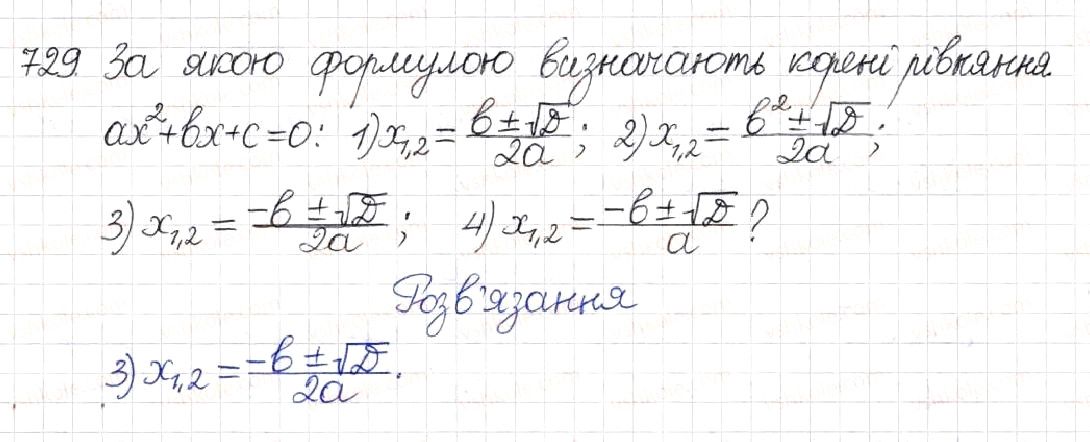 729. За якою формулою визначають корені рівняння
ax²+bx+c=0: 1) x₁,₂ = (b ± √D)/2a; 2) x₁,₂ = (b² ± √D)/2a;
3) x₁,₂ = (-b ± √D)/2a; 4) x₁,₂ = (-b ± √D)/a ?
Розв'язання
3) x₁,₂ = (-b ± √D)/2a.